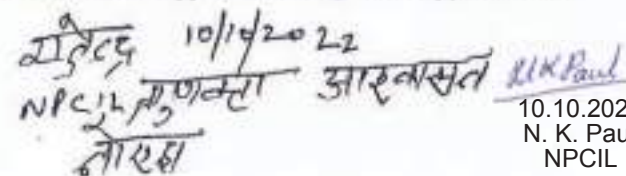 राजेन्द्र 10/10/2022
NPCIL, गुणवत्ता आश्वासन
NKPaul
10.10.202
N. K. Pau
NPCIL